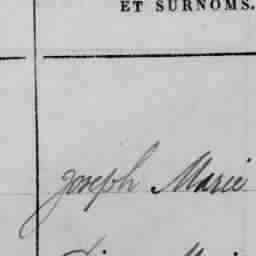 ET SURNOMS.
Joseph Marie